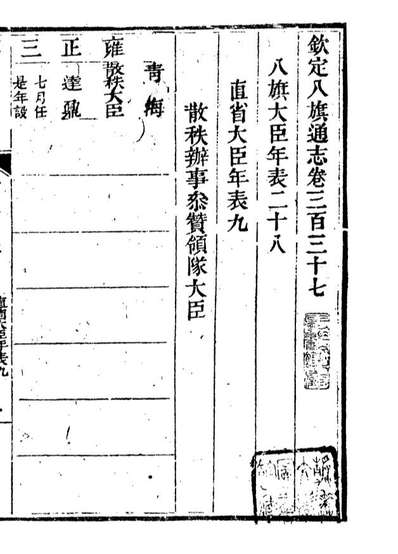 欽定八旗通志卷三百三十七
八旗大臣年表二十八
直省大臣年表九
散秩辦事叅贊領隊大臣
青海
雍散秩大臣
正達鼐
三七月任
是年設
直省大臣年表九